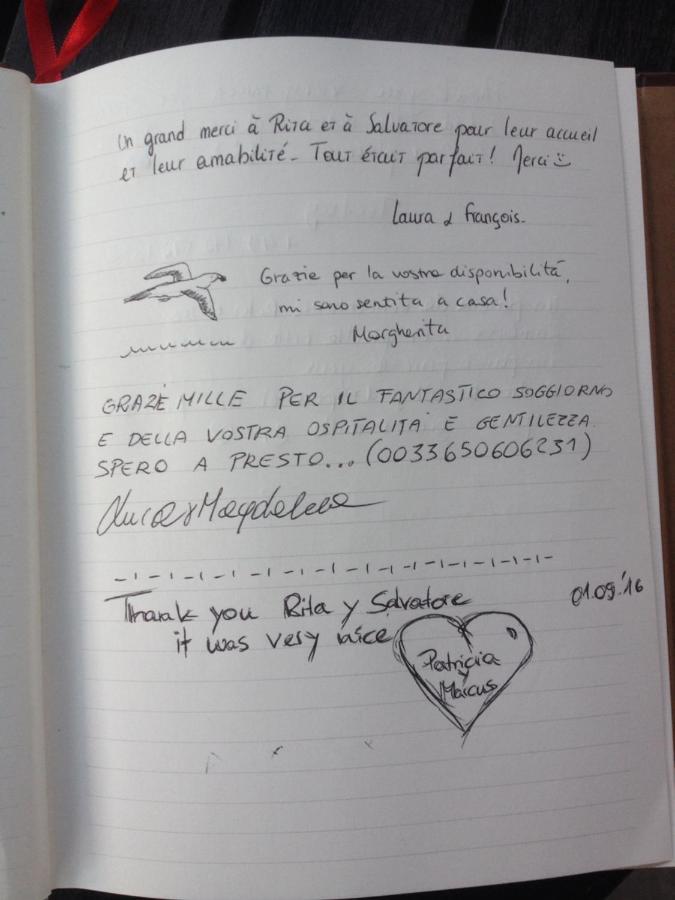 Un grand merci à Rita et à Salvatore pour leur accueil
et leur amabilité. Tout était parfait! Merci
Laura & François.
Grazie per la vostra disponibilità,
mi sono sentita a casa!
Margherita
GRAZIE MILLE PER IL FANTASTICO SOGGIORNO
E DELLA VOSTRA OSPITALITA E GENTILEZZA
SPERO A PRESTO... (0033650606231)
Luca & Magdalena
01.09.'16
Thank you Rita y Salvatore
it was very nice
Patricia
y
Marcus